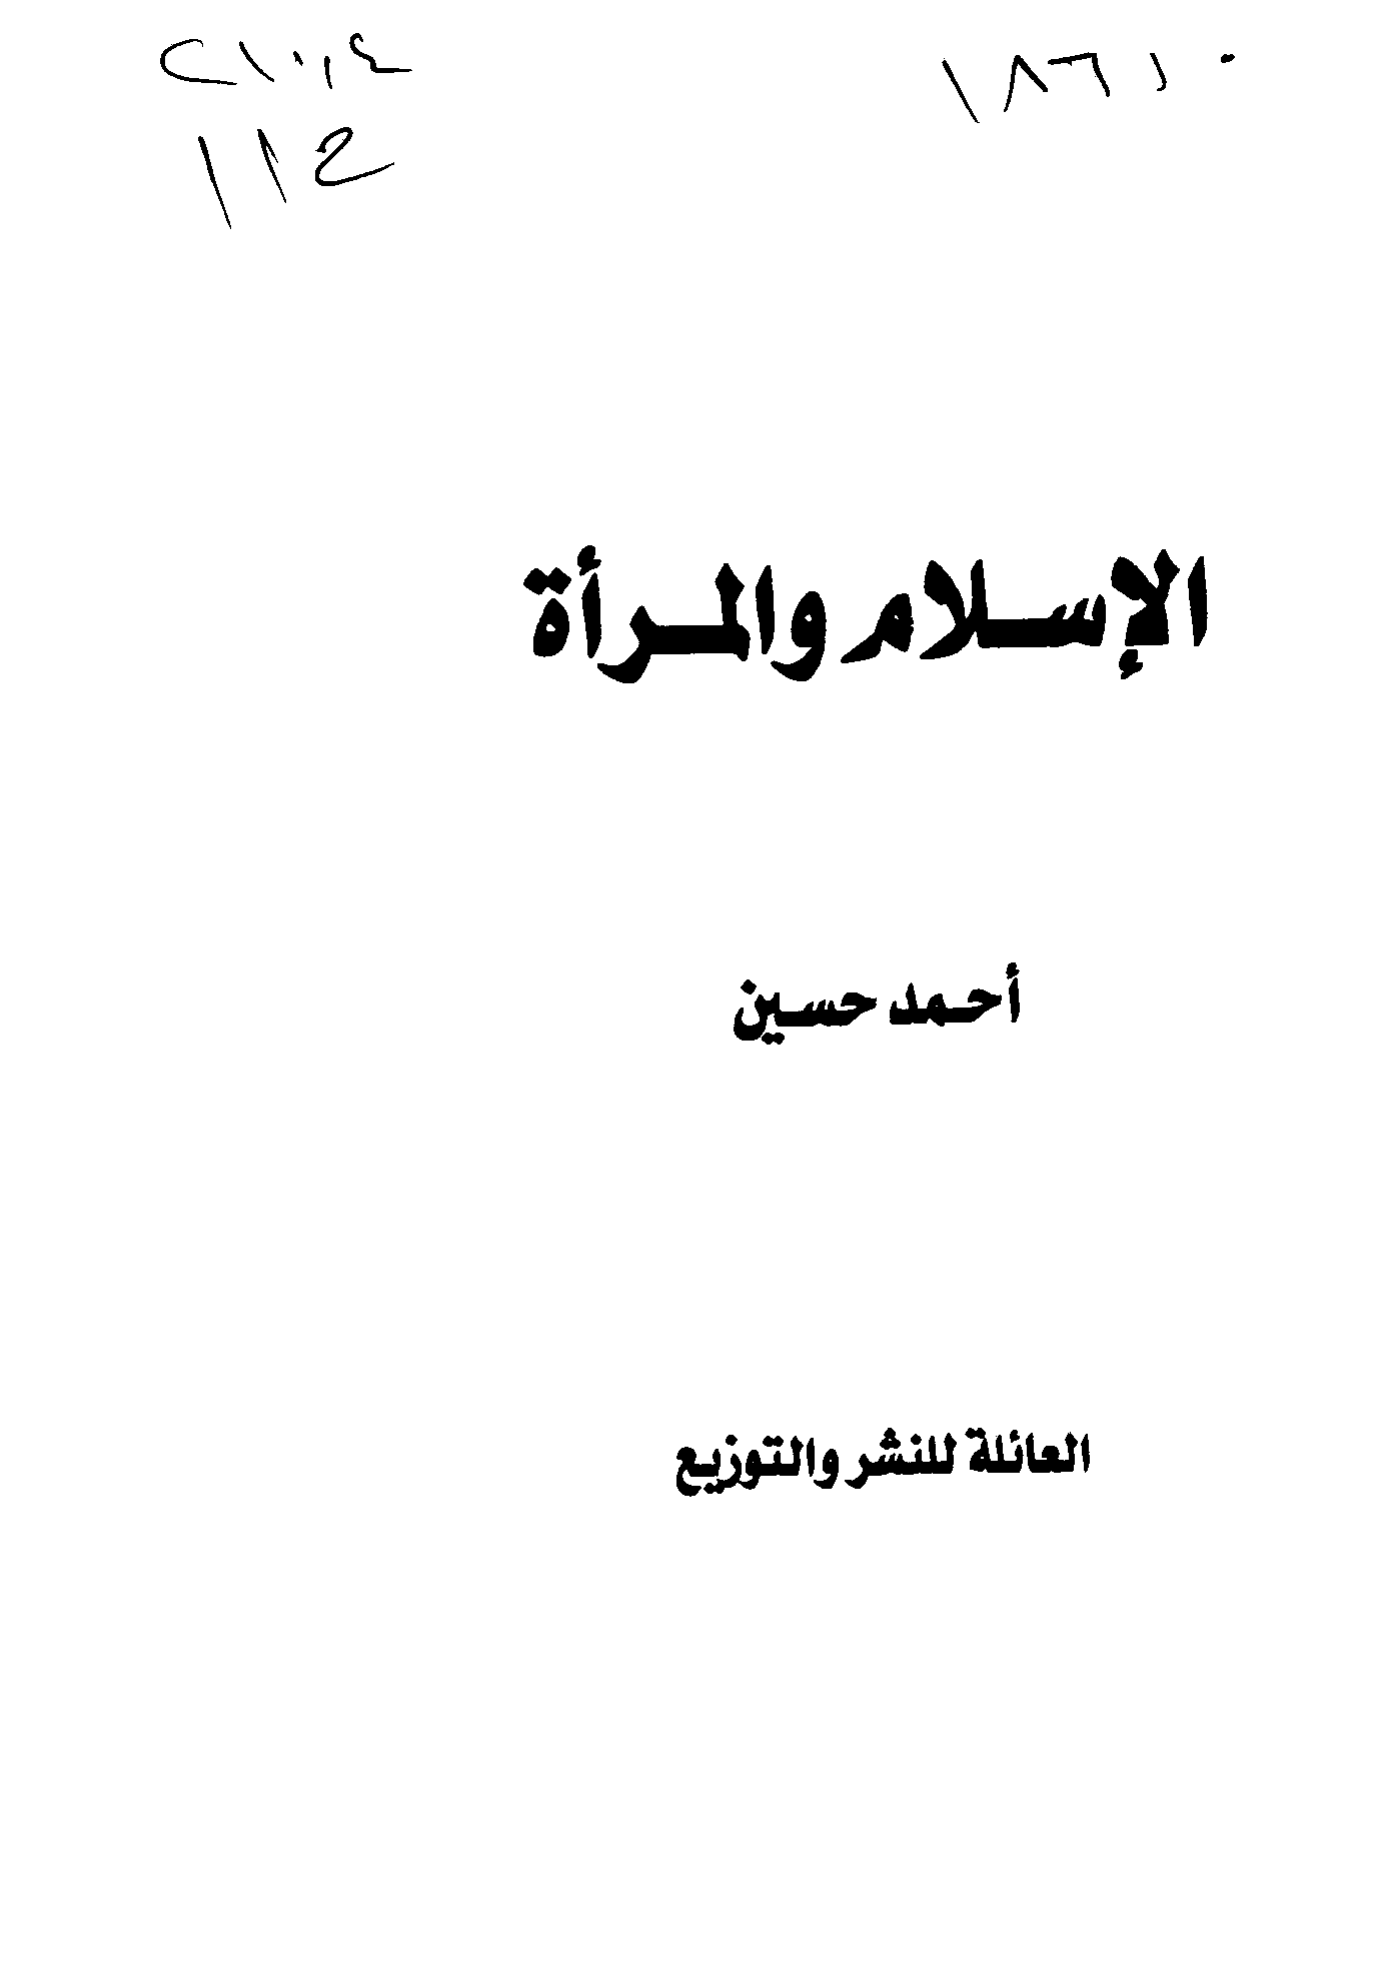 ١٨٦١٠
الإسلام والمرأة
أحمد حسين
العائلة للنشر والتوزيع